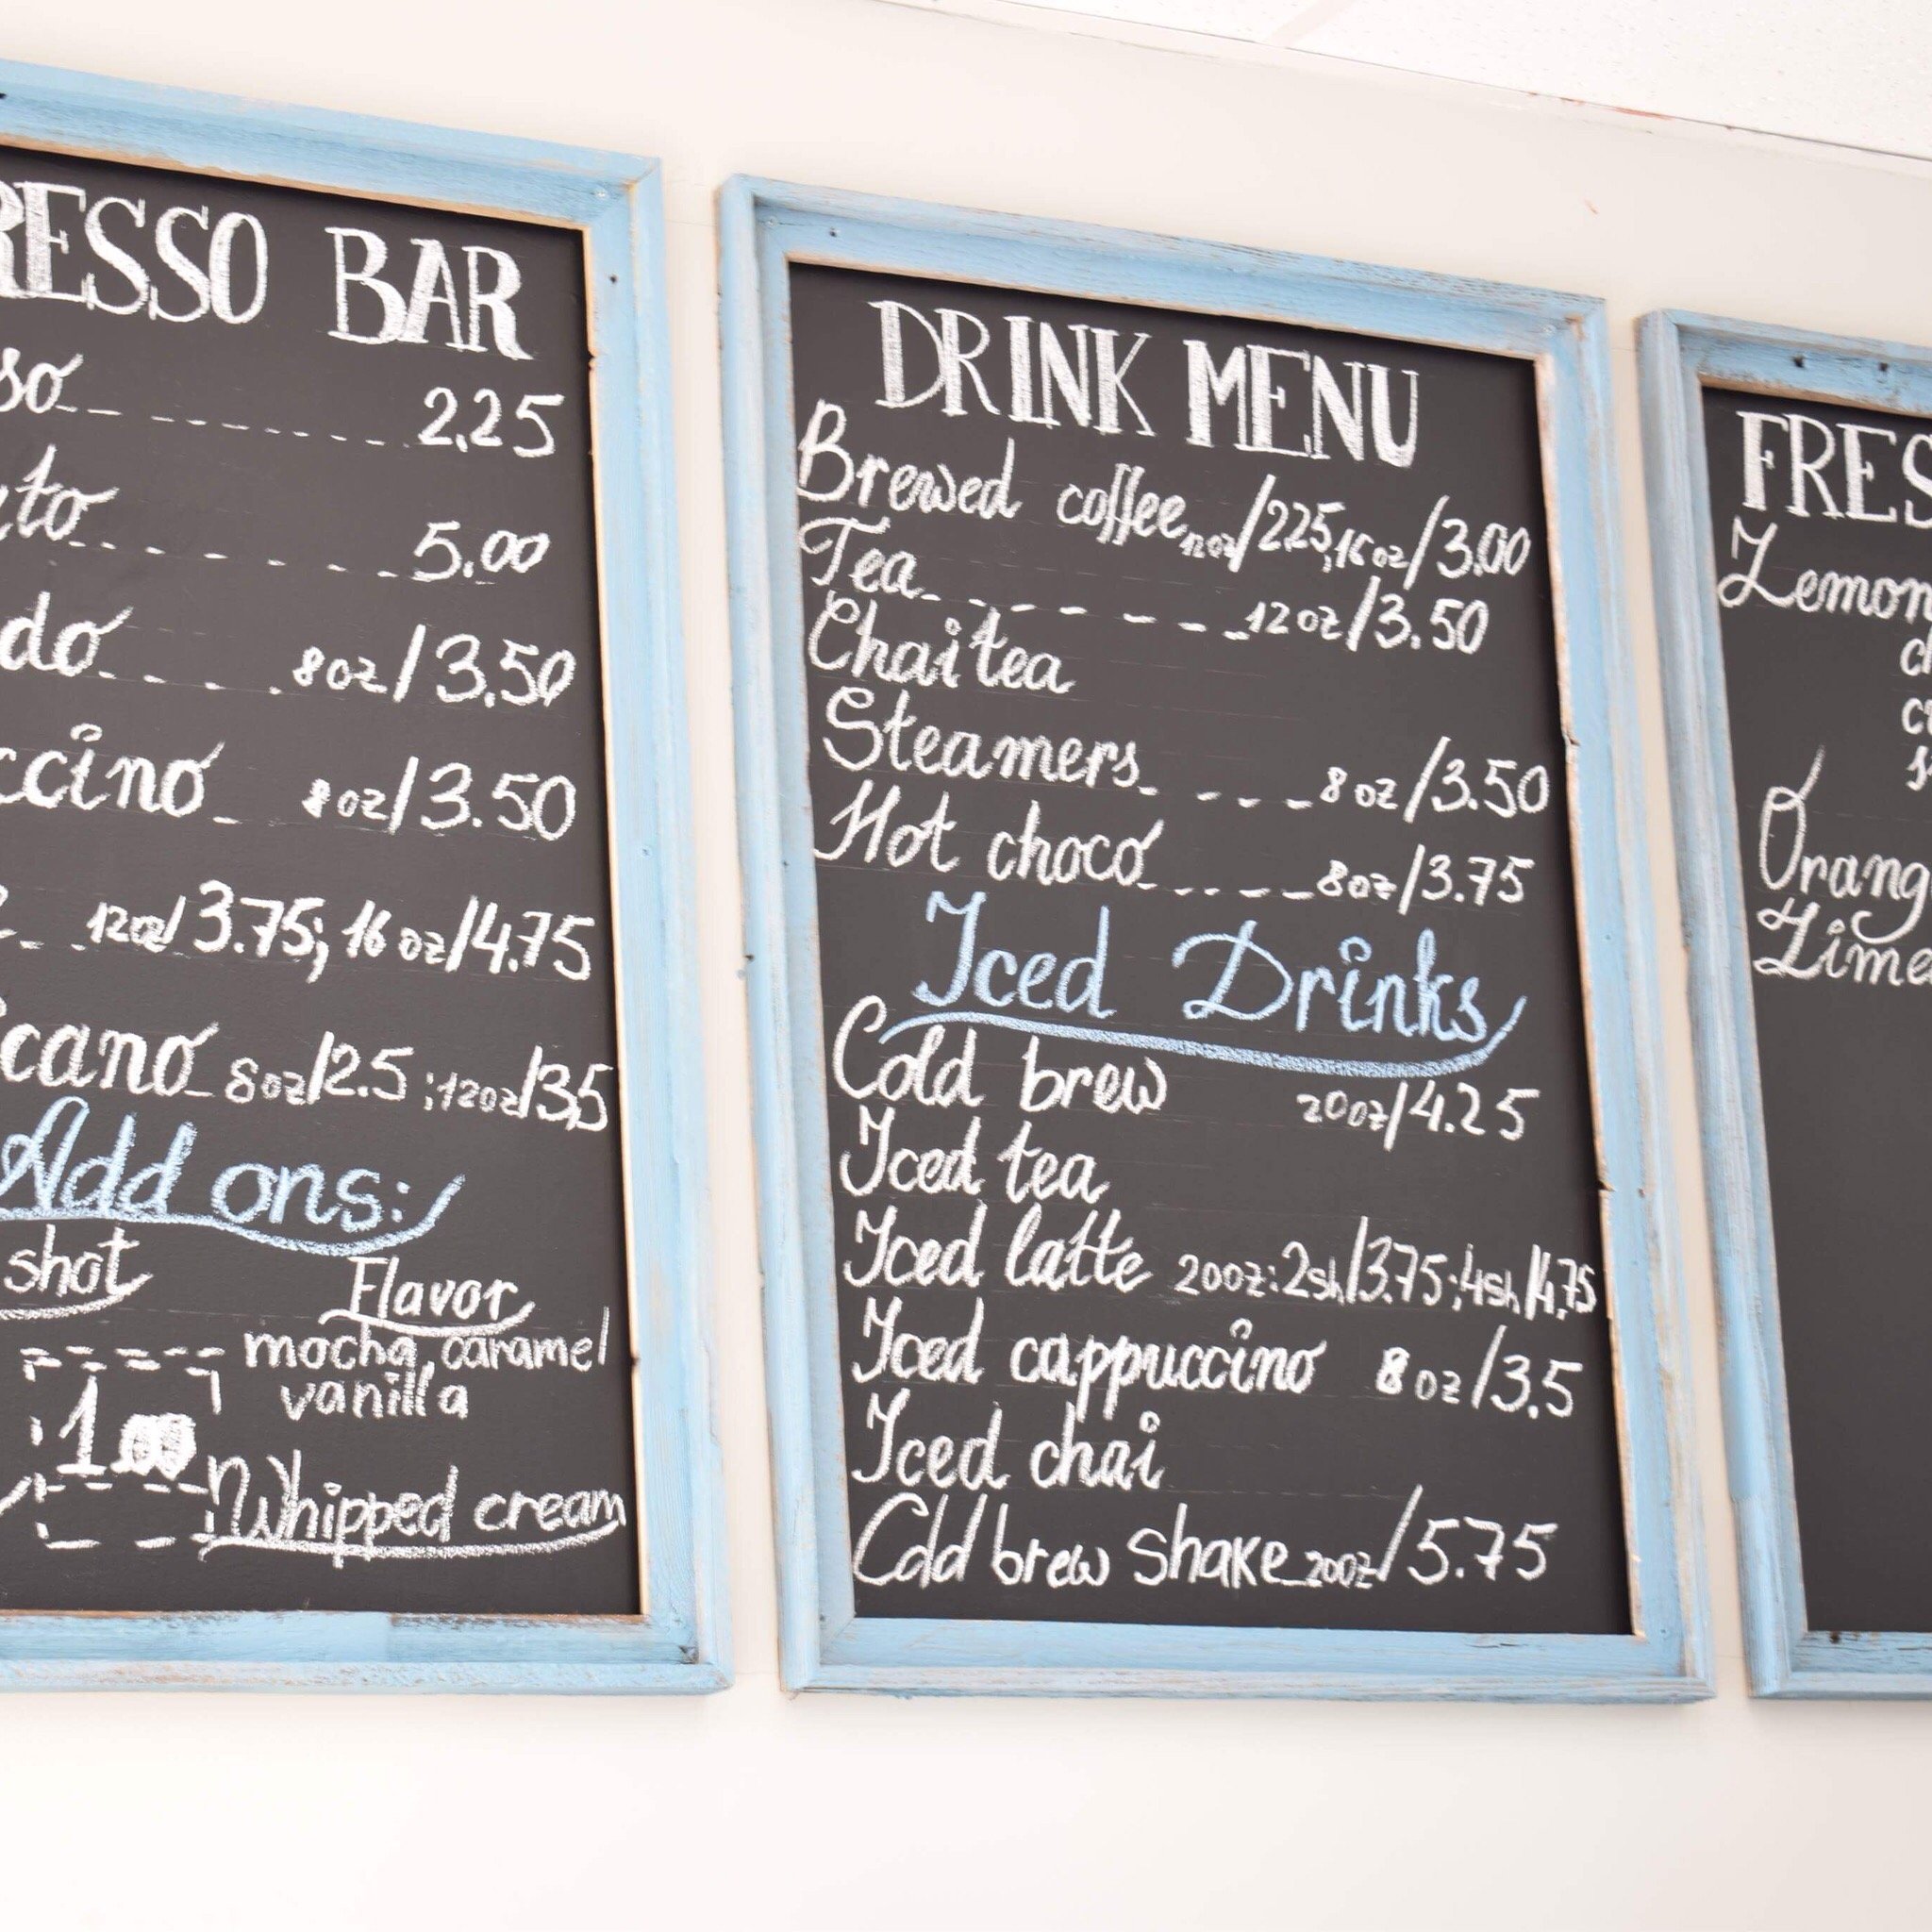 RESSO BAR
so 2,25
to 5.00
do 8oz/3.50
ccino 8oz/3.50
12oz/3.75; 16oz/4.75
cano 8oz/2.5 ;12oz/3,5
Add ons:
shot
Flavor
mocha, caramel
vanilla
1.00
Whipped cream
DRINK MENU
Brewed coffee 12oz/2.25,16oz/3.00
Tea 12oz/3.50
Chai tea
Steamers 8oz/3.50
Hot choco 8oz/3.75
Iced Drinks
Cold brew 20oz/4.25
Iced tea
Iced latte 20oz:2sh/3.75;4sh/4,75
Iced cappuccino 8oz/3.5
Iced chai
Cold brew shake 20oz/5.75
FRES
Lemon
Orang
Lime